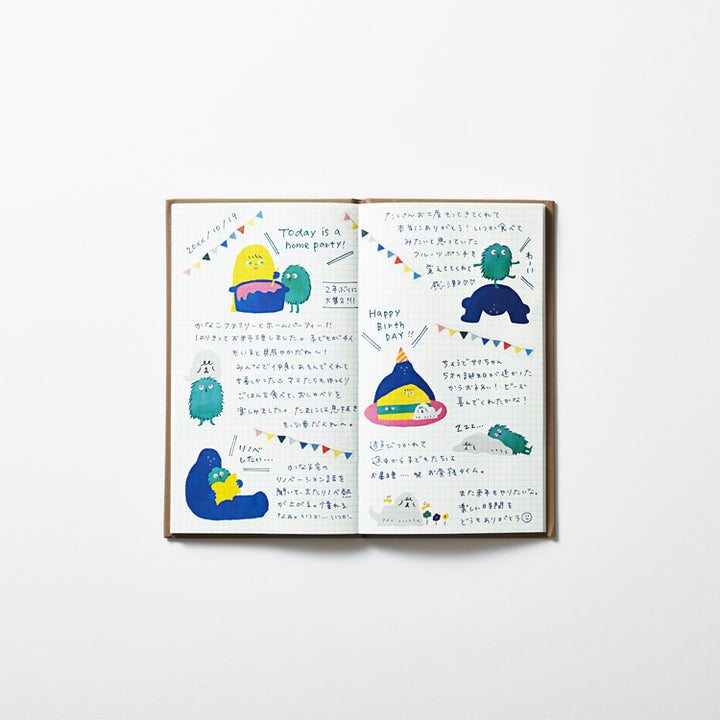 20XX/10/19
Today is a
home party!
2年ぶりに
大集合!!!
かなこファミリーとホームパーティー!!
はりきってお料理しました。子どもが多く
もいると賑やかだね〜!
みんなで仲良くあそんでくれて
ママたちもゆっくり
ごはんを食べて、おしゃべりを
楽しめました。たまには息抜き
も必要だね〜。
リノベ
したい…
かな子家の
リノベーション
聞いて、またリノベ
が上がる。憧れる
なぁ。いつか…いつか…
たくさんお土産もってきてくれて
本当にありがとう!いつか食べて
みたいと思っていた
フルーツポンチを
覚えてくれて
感激♡♡
わーい
Happy
Birth
DAY!!
ちょうどサクちゃん
5才の誕生日が近かった
からお祝い!ピース
喜んでくれたかな?
ZZZ...
遊びつかれて
途中から子どもたちは
お昼寝…笑 お昼寝タイム。
また来年もやりたいな。
楽しい時間を
どうもありがとう